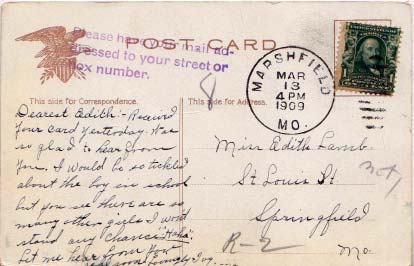 Please have your mail ad-
dressed to your street or
box number.
POST CARD
MARSHFIELD
MAR
13
4 PM
1909
MO.
This side for Correspondence.
This side for Address.
Dearest Adith:- Received
your card yesterday. Was
so glad to hear from
you. I would be so tickled
about the boy in school
but you see there are so
many other girls I wont
stand any chance "Ha Ha"
Let me hear from you
real soon Lovingly
Miss Adith Lamb.
St Louis St.
Springfield
Mo.
R-2